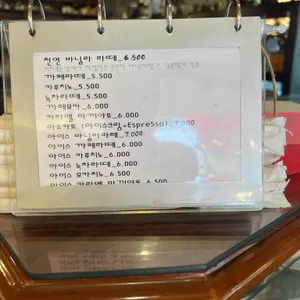 천연 바닐라 라떼_6.500
까페라떼_5.500
카푸치노_5.500
녹차라떼_5.500
까페모카_6.000
카라멜 마끼아또_6.000
아포카토 (아이스크림+Espresso)_7.000
아이스 바닐라라떼_7.000
아이스 까페라떼_6.000
아이스 카푸치노_6.000
아이스 녹차라떼_6.000
아이스 모카치노_6.500
아이스 카라멜 마끼아또_6.500